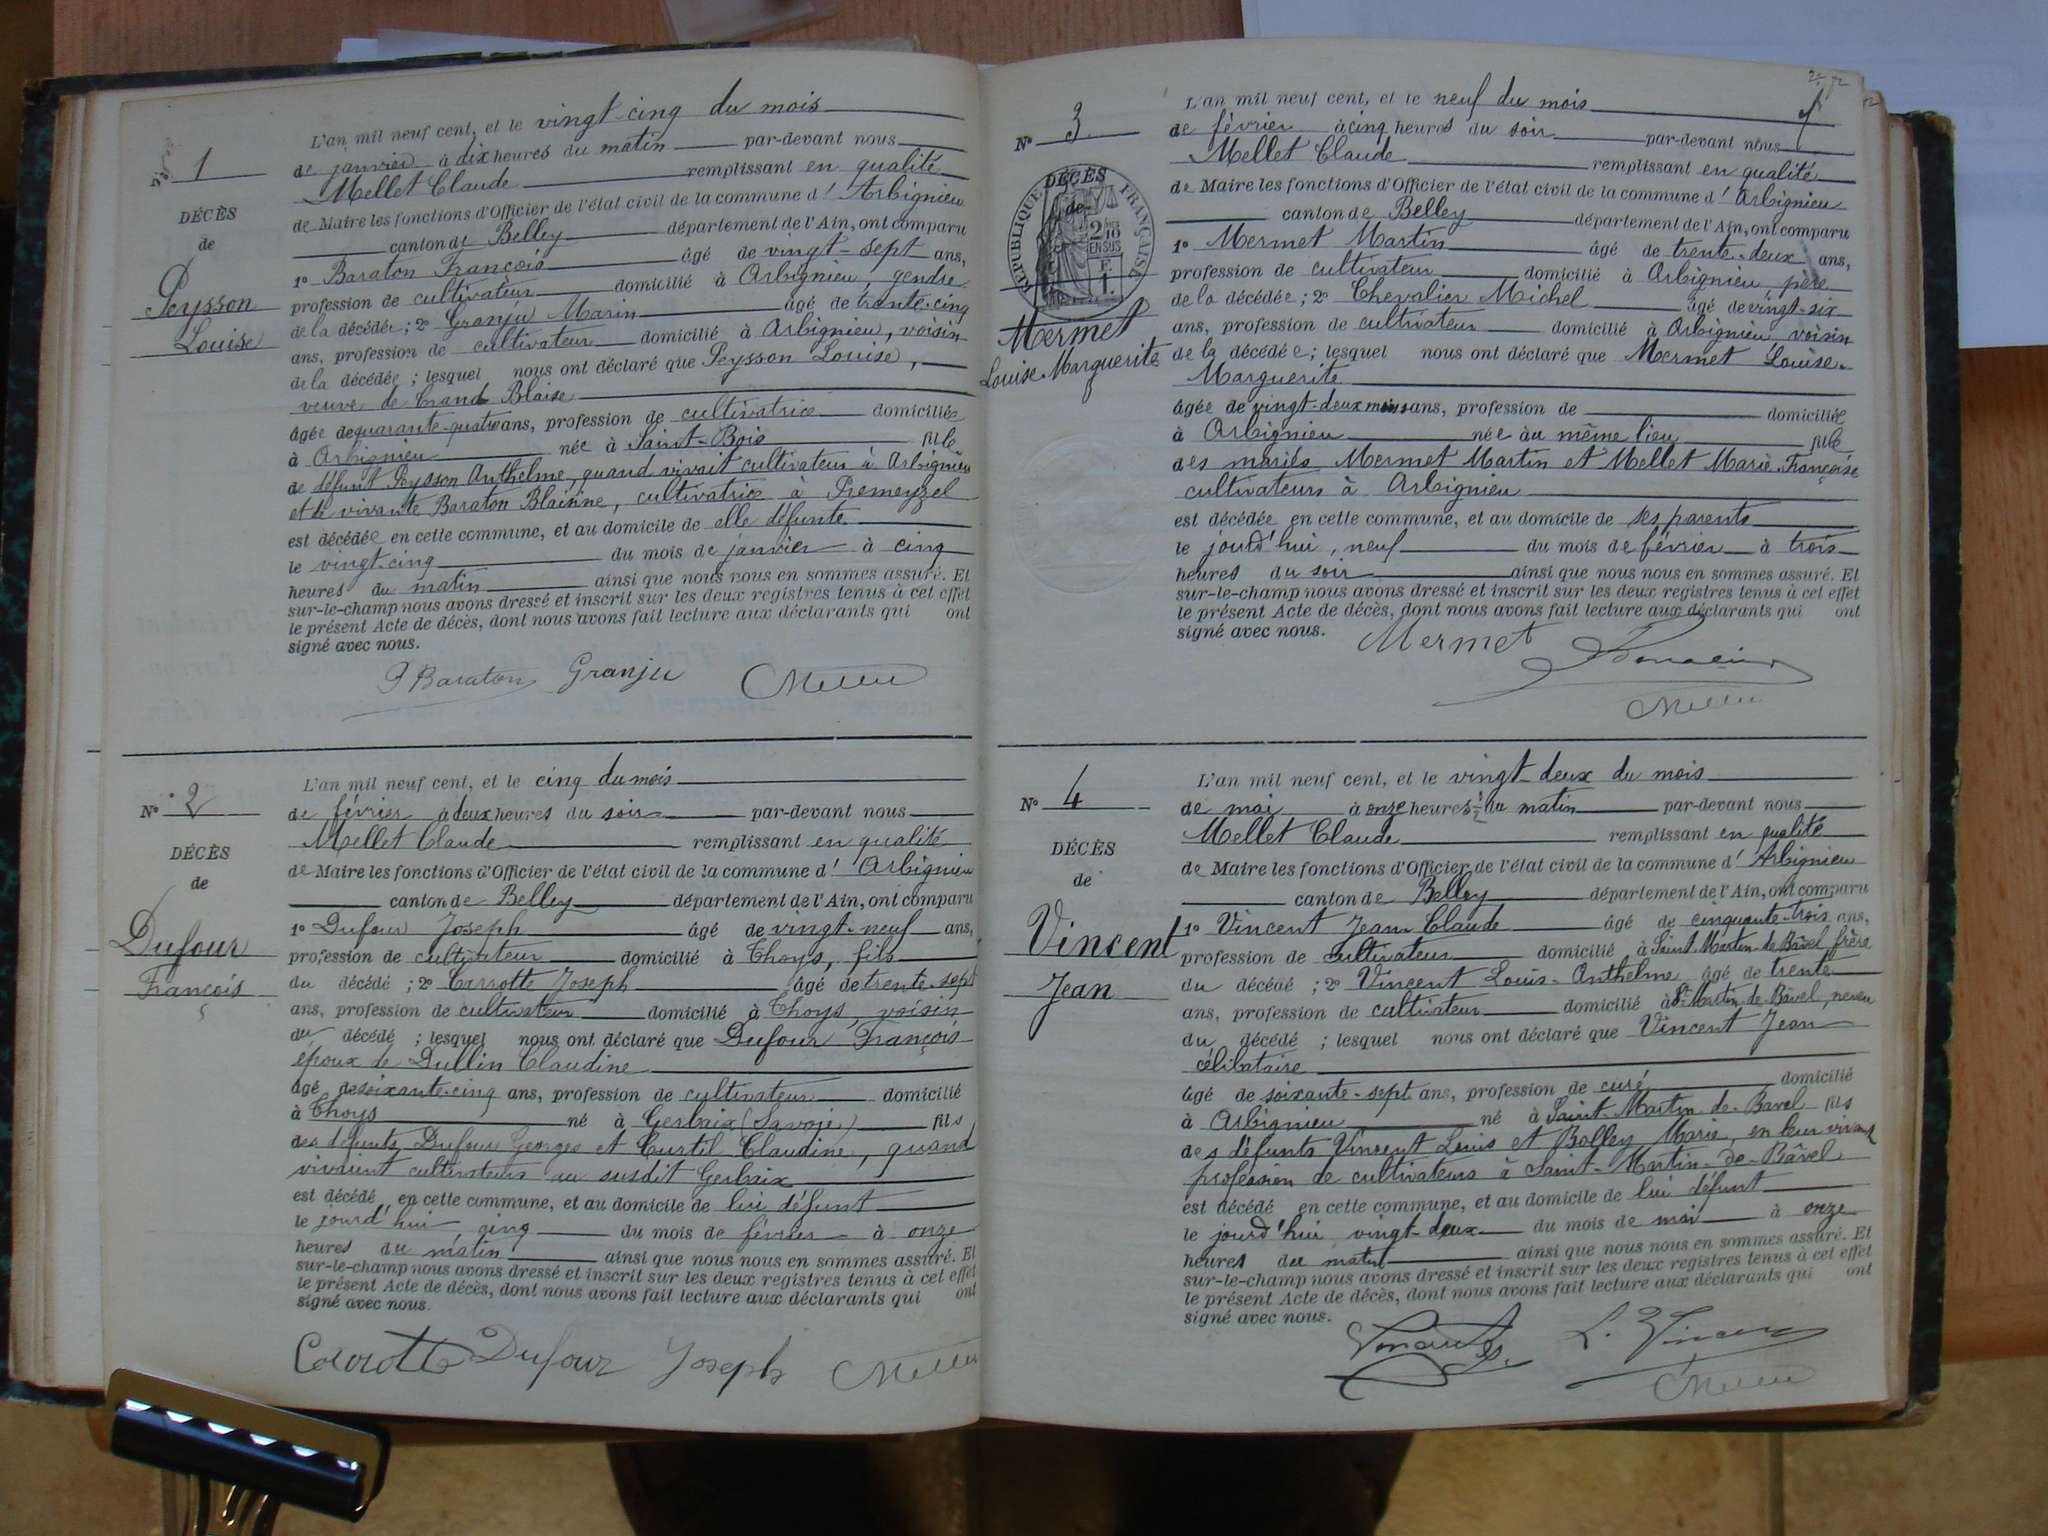 N° 1
DÉCÈS
de
Peysson
Louise
L'an mil neuf cent, et le vingt-cinq du mois
de janvier à dix heures du matin par-devant nous
Mellet Claude remplissant en qualité
de Maire les fonctions d'Officier de l'état civil de la commune d' Arbignieu
canton de Belley département de l'Ain, ont comparu
1° Baraton François âgé de vingt-sept ans,
profession de cultivateur domicilié à Arbignieu, gendre
de la décédée ; 2° Granju Marin âgé de trente-cinq
ans, profession de cultivateur domicilié à Arbignieu, voisin
de la décédée ; lesquel nous ont déclaré que Peysson Louise,
veuve de Grand Blaise
âgée de quarante-quatre ans, profession de cultivatrice domiciliée
à Arbignieu née à Saint-Bois fille
de défunt Peysson Anthelme, quand vivait cultivateur à Arbignieu
et de vivante Baraton Blaisine, cultivatrice à Premeyzel
est décédée en cette commune, et au domicile de elle défunte
le vingt-cinq du mois de janvier à cinq
heures du matin ainsi que nous nous en sommes assuré. Et
sur-le-champ nous avons dressé et inscrit sur les deux registres tenus à cet effet
le présent Acte de décès, dont nous avons fait lecture aux déclarants qui ont
signé avec nous.
F Baraton Granju Mellet
N° 2
DÉCÈS
de
Dufour
François
L'an mil neuf cent, et le cinq du mois
de février à deux heures du soir par-devant nous
Mellet Claude remplissant en qualité
de Maire les fonctions d'Officier de l'état civil de la commune d' Arbignieu
canton de Belley département de l'Ain, ont comparu
1° Dufour Joseph âgé de vingt-neuf ans,
profession de cultivateur domicilié à Thoys, fils
du décédé ; 2° Carrotte Joseph âgé de trente-sept
ans, profession de cultivateur domicilié à Thoys, voisin
du décédé ; lesquel nous ont déclaré que Dufour François
époux de Dullin Claudine
âgé de soixante-cinq ans, profession de cultivateur domicilié
à Thoys né à Gerbaix (Savoie) fils
des défunts Dufour Georges et Curtil Claudine, quand
vivaient cultivateurs au susdit Gerbaix
est décédé en cette commune, et au domicile de lui défunt
le jourd'hui cinq du mois de février à onze
heures du matin ainsi que nous nous en sommes assuré. Et
sur-le-champ nous avons dressé et inscrit sur les deux registres tenus à cet effet
le présent Acte de décès, dont nous avons fait lecture aux déclarants qui ont
signé avec nous.
Carrotte Dufour Joseph Mellet
N° 3
DÉCÈS
de
RÉPUBLIQUE FRANÇAISE
2/10 EN SUS
Mermet
Louise-Marguerite
L'an mil neuf cent, et le neuf du mois
de février à cinq heures du soir par-devant nous
Mellet Claude remplissant en qualité
de Maire les fonctions d'Officier de l'état civil de la commune d' Arbignieu
canton de Belley département de l'Ain, ont comparu
1° Mermet Martin âgé de trente-deux ans,
profession de cultivateur domicilié à Arbignieu, père
de la décédée ; 2° Chevalier Michel âgé de vingt-six
ans, profession de cultivateur domicilié à Arbignieu, voisin
de la décédée ; lesquel nous ont déclaré que Mermet Louise-
Marguerite
âgée de vingt-deux mois ans, profession de domiciliée
à Arbignieu née au même lieu fille
des mariés Mermet Martin et Mellet Marie-Françoise
cultivateurs à Arbignieu
est décédée en cette commune, et au domicile de ses parents
le jourd'hui, neuf du mois de février à trois
heures du soir ainsi que nous nous en sommes assuré. Et
sur-le-champ nous avons dressé et inscrit sur les deux registres tenus à cet effet
le présent Acte de décès, dont nous avons fait lecture aux déclarants qui ont
signé avec nous.
Mermet
Mellet
N° 4
DÉCÈS
de
Vincent
Jean
L'an mil neuf cent, et le vingt-deux du mois
de mai à onze heures 1/2 du matin par-devant nous
Mellet Claude remplissant en qualité
de Maire les fonctions d'Officier de l'état civil de la commune d' Arbignieu
canton de Belley département de l'Ain, ont comparu
1° Vincent Jean Claude âgé de cinquante-trois ans,
profession de cultivateur domicilié à Saint-Martin-de-Bavel frère
du décédé ; 2° Vincent Louis-Anthelme âgé de trente
ans, profession de cultivateur domicilié à St-Martin-de-Bavel, neveu
du décédé ; lesquel nous ont déclaré que Vincent Jean
célibataire
âgé de soixante-sept ans, profession de curé domicilié
à Arbignieu né à Saint-Martin-de-Bavel fils
des défunts Vincent Louis et Bolley Marie, en leur vivant
profession de cultivateurs à Saint-Martin-de-Bâvel
est décédé en cette commune, et au domicile de lui défunt
le jourd'hui vingt-deux du mois de mai à onze
heures du matin ainsi que nous nous en sommes assuré. Et
sur-le-champ nous avons dressé et inscrit sur les deux registres tenus à cet effet
le présent Acte de décès, dont nous avons fait lecture aux déclarants qui ont
signé avec nous.
Vincent L. Vincent
Mellet